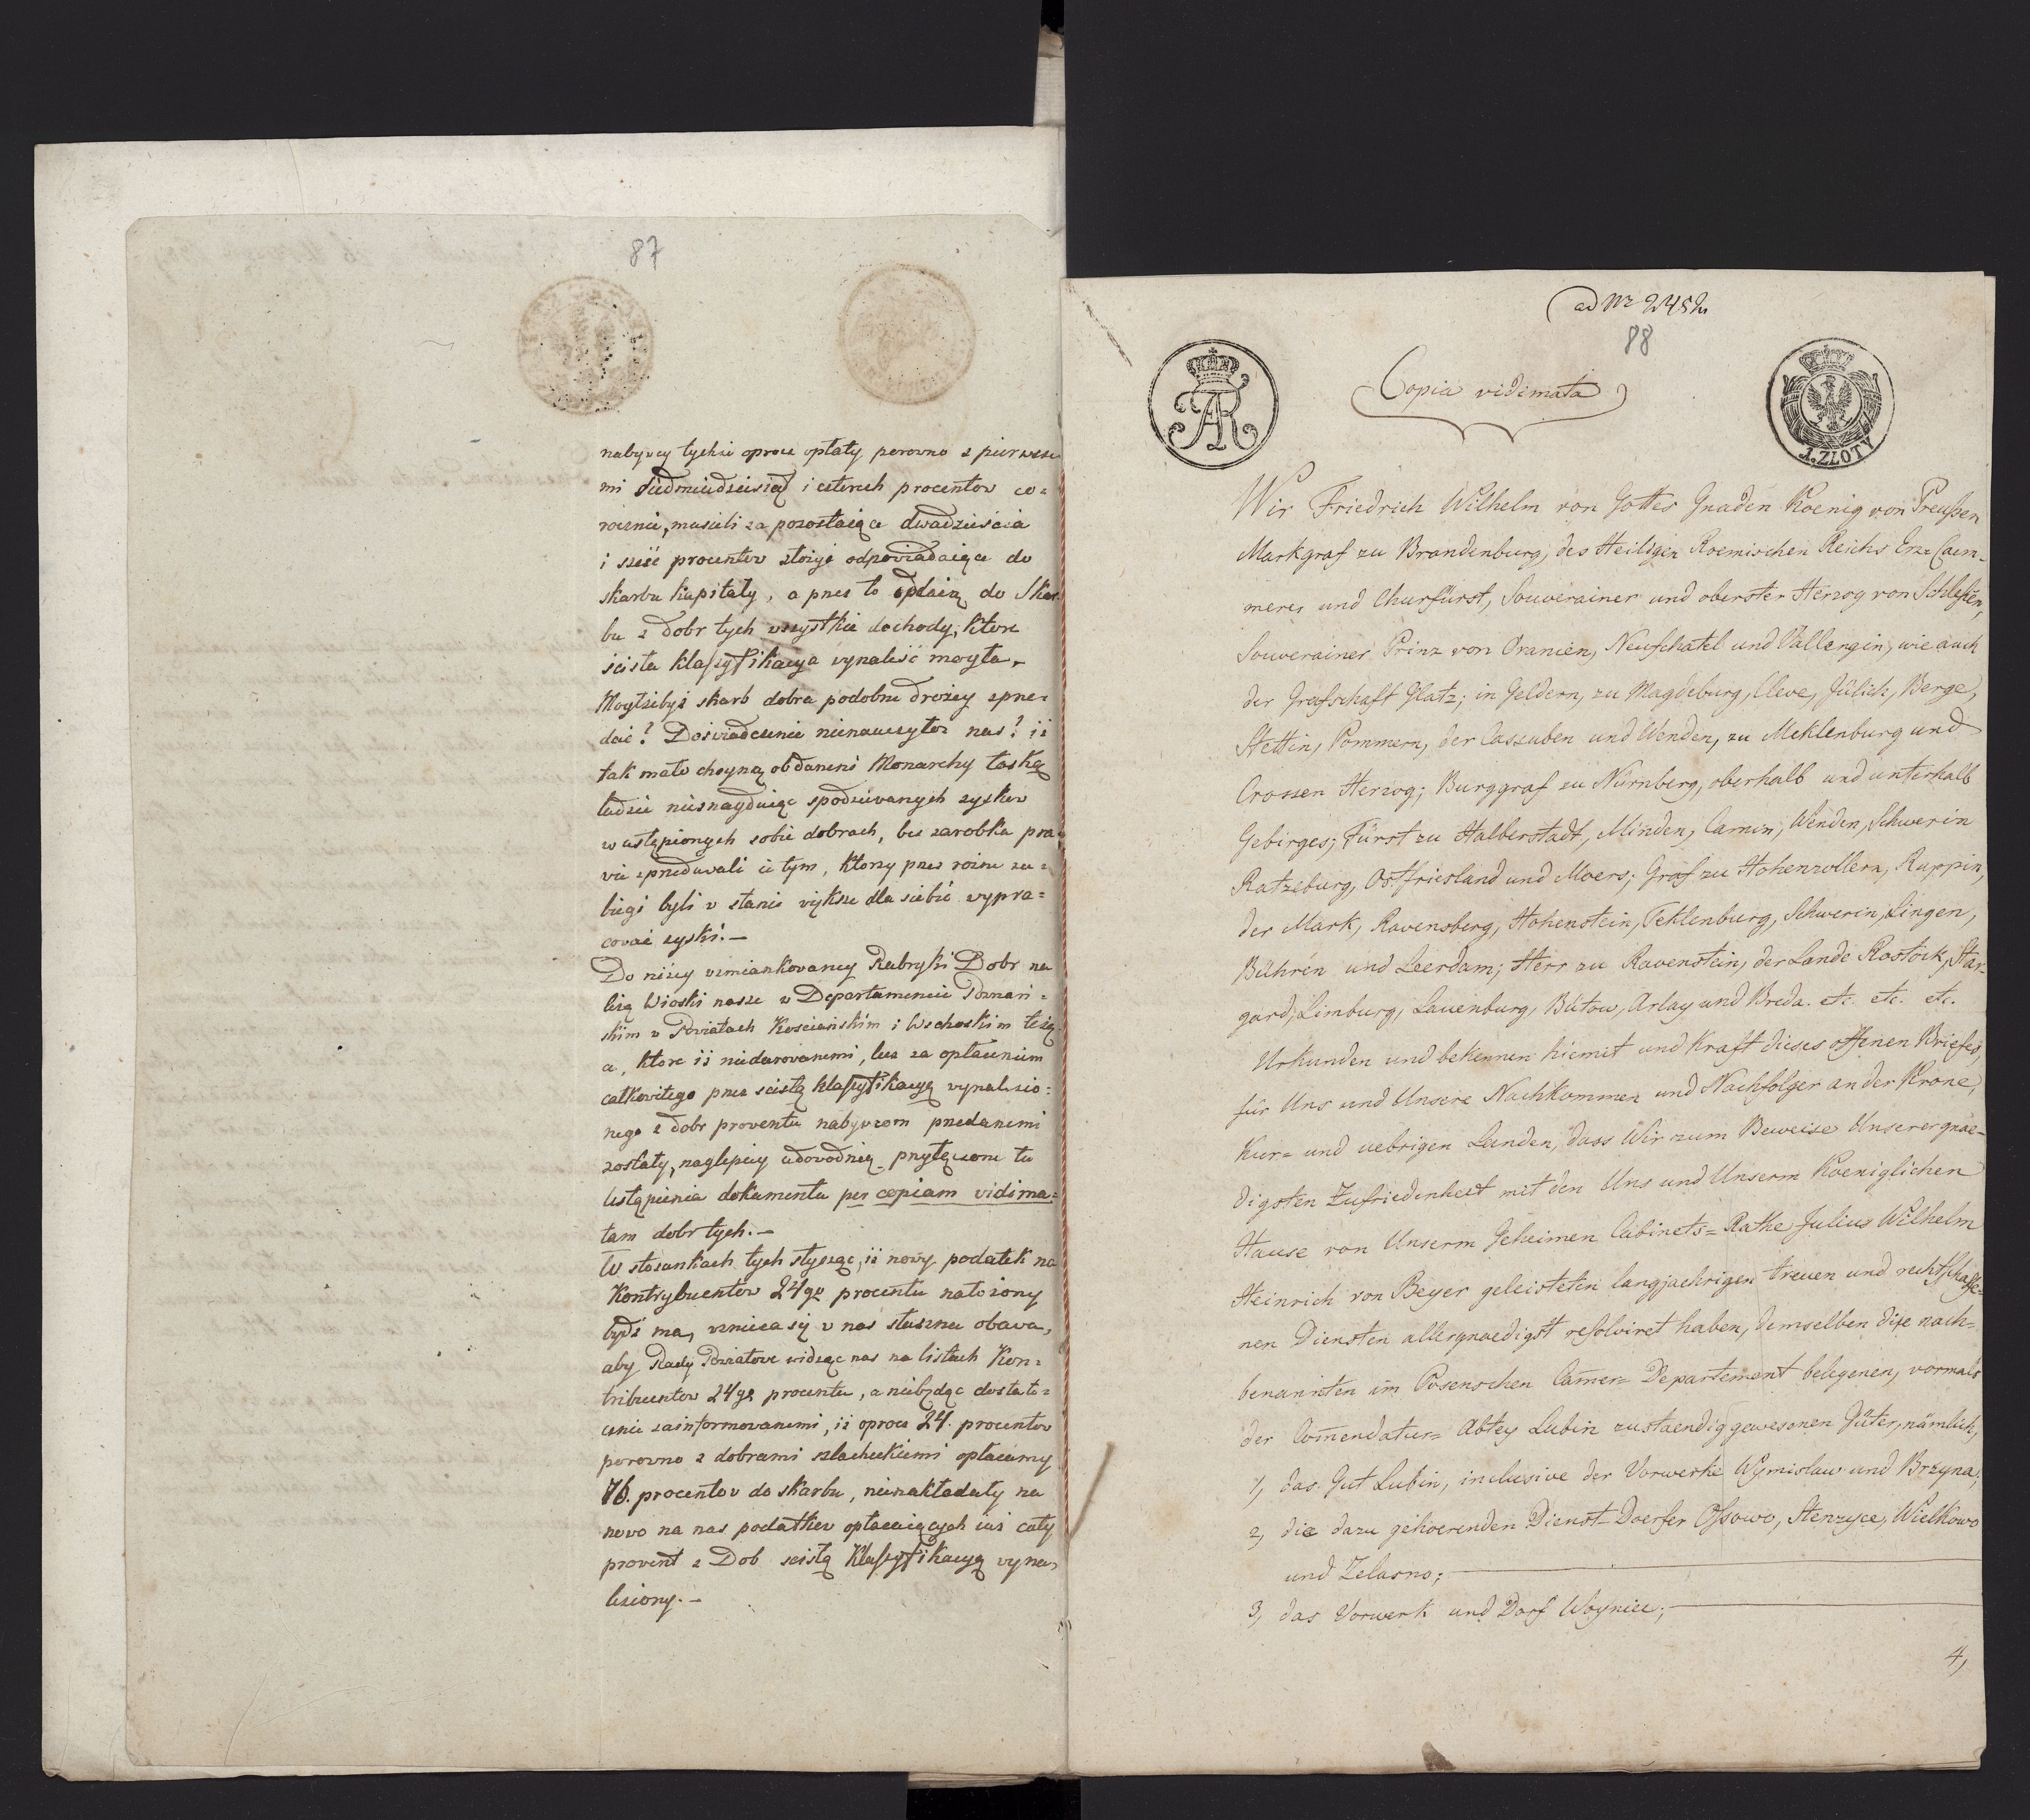 87
nabywcy tychże oprócz opłaty porowno z pierwsze
mi siedmiudziesiąt i czterech procentow co=
rocznie, musieli za pozostaiące dwadzieścia
i sześć procentow złożyć odpowiadaiące do
skarbu kapitały, a przez to opłacią do Skar
bu z dobr tych wszystkie dochody, ktore
scisła klassyfikacya wynaleść mogła.
Mogłżebyż skarb dobra podobne drożey sprze=
dać? Doświadczenie nienauczyłoż nas? iż
tak mało choyną obdarzeni Monarchy łaską
ludzie nieznayduiąc spodziewanych zyskow
w ustąpionych sobie dobrach, bez zarobku pra
wie sprzedawali ie tym, ktorzy przez rożne za=
biegi byli w stanie większe dla siebie wypra=
cować zyski.—
Do niżey wzmiankowaney Rubryki Dobr na
leżą Wioski nasze w Departamencie Poznań=
skim w Powiatach Kościańskim i Wschoskim leżą
ce, ktore iż niedarowanemi, lecz za opłaceniem
całkowitego przez scisłą klassyfikacyą wynalezio=
nego z dobr proventu nabywcom przedanemi
zostały, naylepiey udowodnią przyłączone tu
Ustąpienia dokumenta per copiam vidima=
tam dobr tych.—
W stosunkach tych słysząc, iż nowy podatek na
Kontrybuentow 24go procentu nałożony
bydź ma, wznieca się w nas słuszna obawa,
aby Rady Powiatowe widząc nas na listach Kon=
tribuentow 24go procentu, a niebędąc dostate=
cznie zainformowanemi, iż oprocz 24. procentow
porowno z dobrami szlacheckiemi opłacamy
76. procentow do skarbu, nienakładały na
nowo na nas podatkow opłacaiących iuż cały
provent z Dob scisłą Klassyfikacyą wyna=
leziony.—
ad Nr 2452
88
Copia vidimata
AR
1. ZŁOTY
Wir Friedrich Wilhelm von Gottes Gnaden Koenig von Preußen
Markgraf zu Brandenburg, des Heiligen Roemischen Reichs Erz=Caem=
merer und Churfürst, Souverainer und oberster Herzog von Schlesien,
Souverainer Prinz von Oranien, Neufchatel und Vallengin, wie auch
der Grafschaft Glatz; in Geldern, zu Magdeburg, Cleve, Jülich, Berge,
Stettin, Pommern, der Cassuben und Wenden, zu Meklenburg und
Crossen Herzog; Burggraf zu Nürnberg, oberhalb und unterhalb
Gebirges; Fürst zu Halberstadt, Minden, Camin, Wenden, Schwerin
Ratzeburg, Ostfriesland und Moers; Graf zu Hohenzollern, Ruppin,
der Mark, Ravensberg, Hohenstein, Teklenburg, Schwerin, Lingen,
Bühren und Leerdam; Herr zu Ravenstein, der Lande Rostock, Star=
gard, Limburg, Lauenburg, Bütow, Arlay und Breda. etc. etc. etc.
Urkunden und bekennen hiemit und Kraft dieses offenen Briefes,
für Uns und Unsere Nachkommen und Nachfolger an der Krone,
Kur= und uebrigen Landen, dass Wir zum Beweise Unserer gnae=
digsten Zufriedenheit mit den Uns und Unserm Koeniglichen
Hause von Unserm Geheimen Cabinets=Rathe Julius Wilhelm
Heinrich von Beyer geleisteten langjaehrigen treuen und rechtschaffe=
nen Diensten allergnaedigst resolviret haben, demselben die nach=
benannten im Posenschen Camer=Departement belegenen, vormals
der Comendatur=Abtey Lubin zustaendig gewesenen Güter, nämlich,
1, das Gut Lubin, inclusive der Vorwerke Wymislaw und Brzyna;
2, die dazu gehoerenden Dienst=Doerfer Ossowo, Stenzyce, Wielkowo
und Zelasno;
3, das Vorwerk und Dorf Woynice;
4,